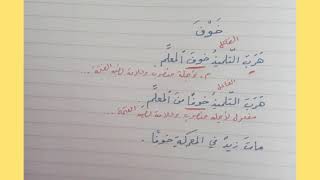 خَوْفَ
العامل
هَرَبَ التّلميذُ خوفَ المعلّمِ
م. لأجله منصوب وعلامة نصبه الفتحة...
العامل
هَرَبَ التّلميذُ خوفًا منَ المعلّمِ
مفعول لأجله منصوب وعلامة نصبه الفتحة...
ماتَ زيدٌ في المعركةِ خوفًا.